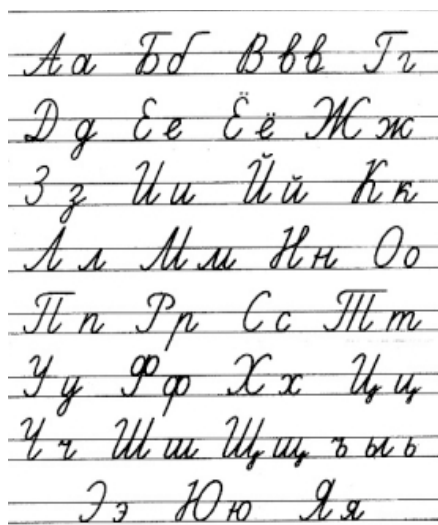 Аа Бб Ввв Гг
Дд Ее Ёё Жж
Зз Ии Йй Кк
Лл Мм Нн Оо
Пп Рр Сс Тт
Уу Фф Хх Цц
Чч Шш Щщ ъ ы ь
Ээ Юю Яя